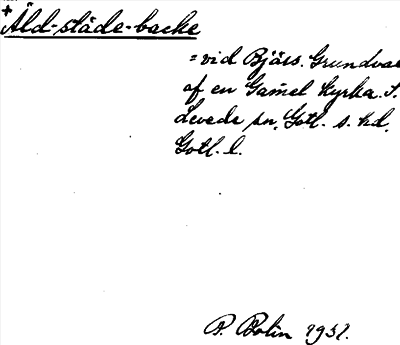 +
Äld-städe-backe
= vid Bjärs. Grundval
af en Gam̄el Kyrka. S.
Levede sn, Gotl. s. hd,
Gotl. l.
P. Bolin 1931.